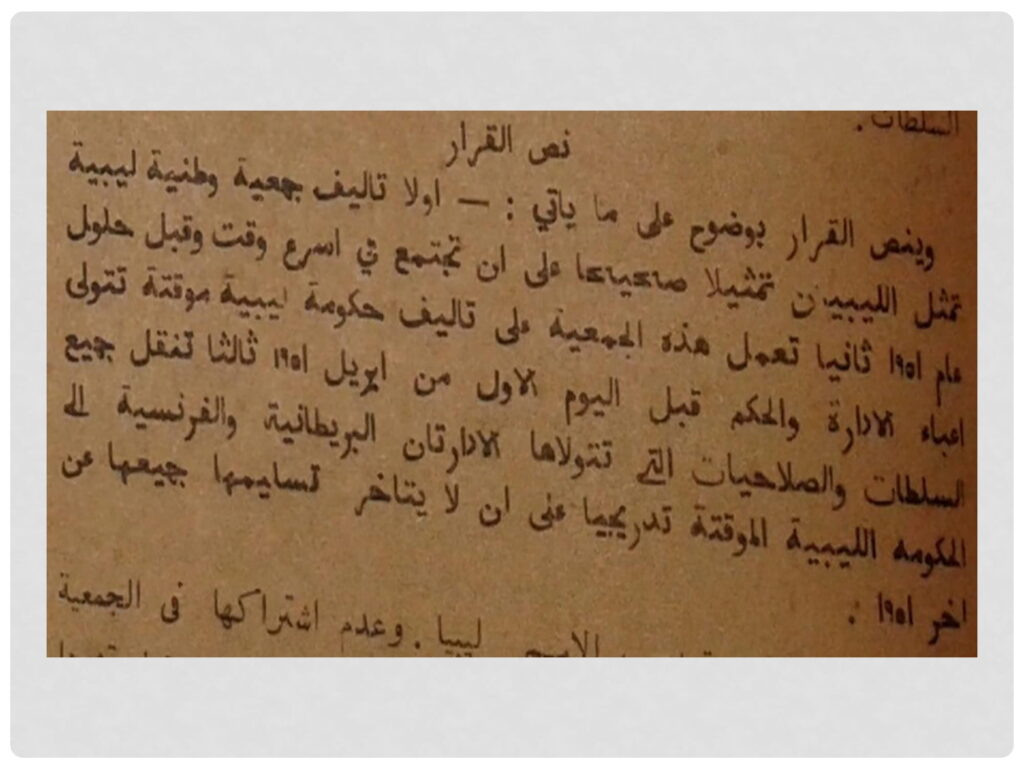 السلطات .
نص القرار
وينص القرار بوضوح على ما ياتي : — اولا تاليف جمعية وطنية ليبية
تمثل الليبيين تمثيلا صاحيحا على ان تجتمع في اسرع وقت وقبل حلول
عام ١٩٥١ ثانيا تعمل هذه الجمعية على تاليف حكومة ليبية موقتة تتولى
اعباء الادارة والحكم قبل اليوم الاول من ابريل ١٩٥١ ثالثا تنقل جميع
السلطات والصلاحيات التي تتولاها الادارتان البريطانية والفرنسية الى
الحكومه الليبية الموقتة تدريجيا على ان لا يتاخر تسليمها جميعها عن
اخر ١٩٥١ .
ليبيا . وعدم اشتراكها في الجمعية